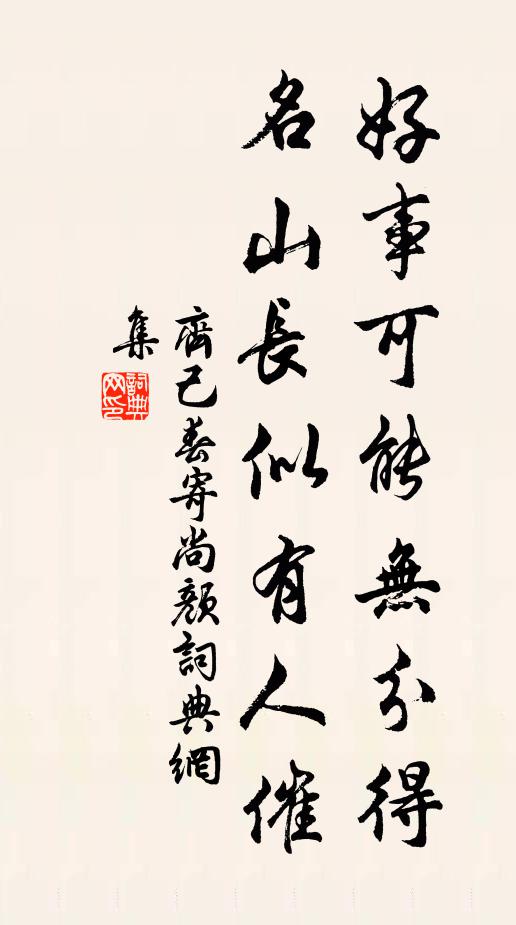 好事可能無分得
名山長似有人催
齊己春寄尚顏詞典網
集
詞典
网印